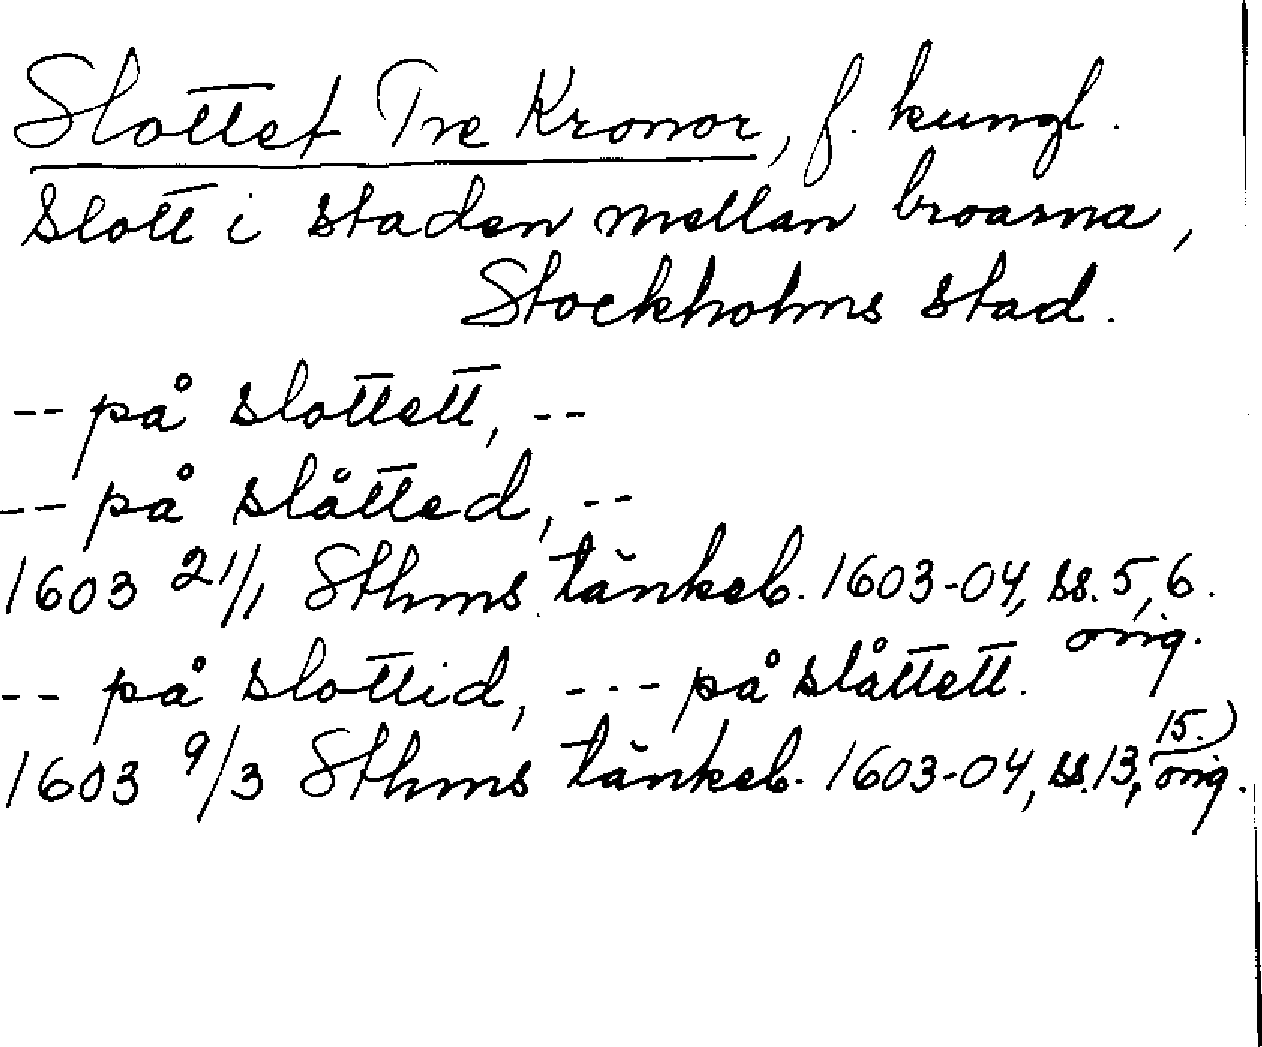 Slottet Tre Kronor, f. kungl.
slott i staden mellan broarna,
Stockholms stad.
-- på slottett, --
-- på slåtted, --
1603 21/1 Sthms tänkeb. 1603-04, ss. 5, 6.
orig.
-- på slottid, --- på slåttett.
1603 9/3 Sthms tänkeb. 1603-04, ss. 13, 15. orig.